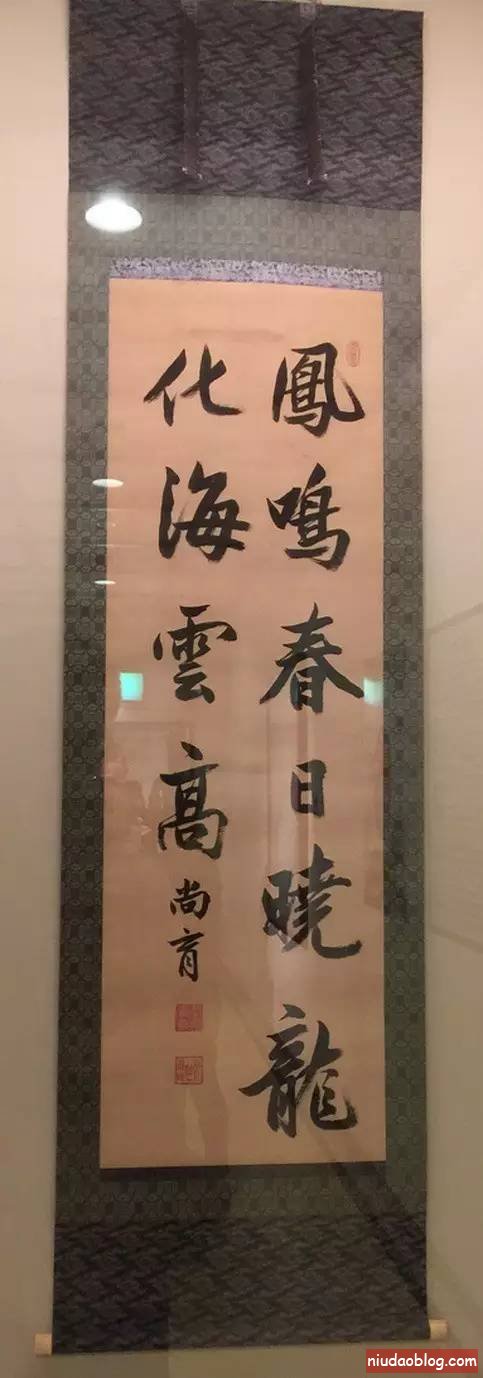 鳳鳴春日曉龍
化海雲高
尚育
niudaoblog.com